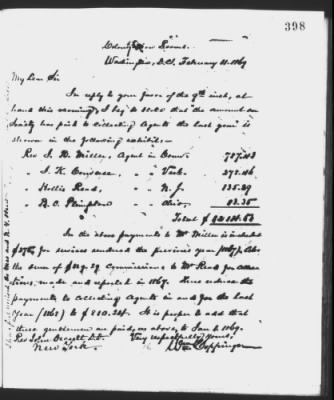 398
Colonization Rooms.
Washington, D.C. February 11. 1869
My Dear Sir
In reply to your favor of the 9th inst, at
hand this morning, I beg to state that the amount our
Society has paid to collecting Agents the last year is
shown in the following exhibit:
Rev J. K. Miller, Agent in Conn.
" J. K. Converse, " " Verb.
" Hollis Read, " " N. J. 135.29
" B. O. Plimpton " " Ohio,
Total $
In the above payments to Mr Miller is included
for services rendered the previous year (1867), also
the sum of Commissions to Mr Read for collec
tions, made and reported in 1867. Thus reduce the
payments to Collecting Agents in and for the last
Year (1868) to $810.24. It is proper to add that
these gentlemen are paid, as above, to Jan 1. 1869.
Rev John Orcutt, D.D. Very respectfully yours,
New York. Wm Coppinger